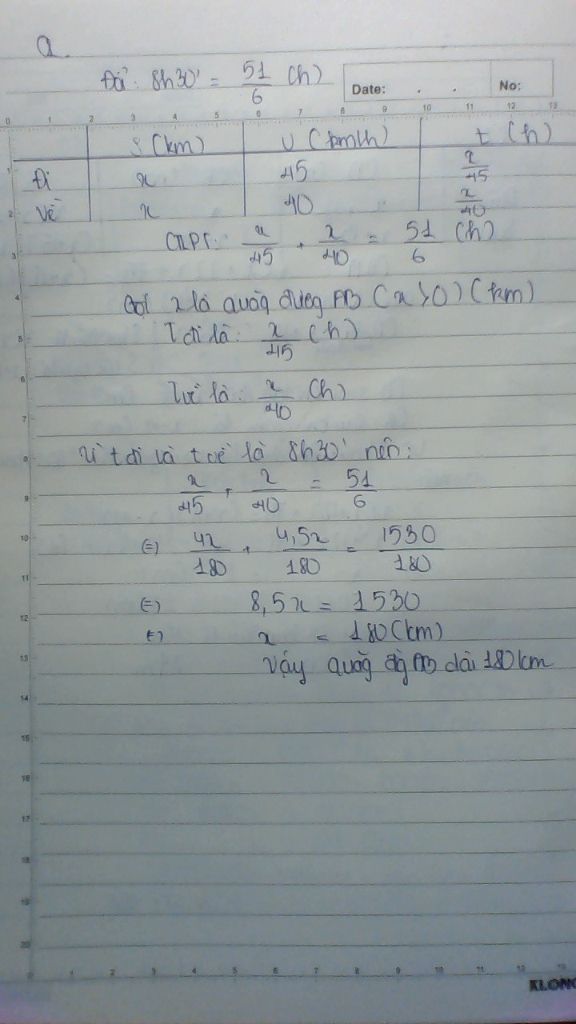 a.
Đổi: 8h30' = 51/6 (h)
Date: . . No:
0 1 2 3 4 5 6 7 8 9 10 11 12 13
S (km) v (km/h) t (h)
Đi x 45 x/45
Về x 40 x/40
x/45 + x/40 = 51/6 (h)
Gọi x là quãng đường AB (x > 0) (km)
T đi là: x/45 (h)
T về là: x/40 (h)
Vì t đi và t về là 8h30' nên:
x/45 + x/40 = 51/6
(=) 4x/180 + 4,5x/180 = 1530/180
(=) 8,5x = 1530
(=) x = 180 (km)
Vậy quãng đg AB dài 180 km
KLONG